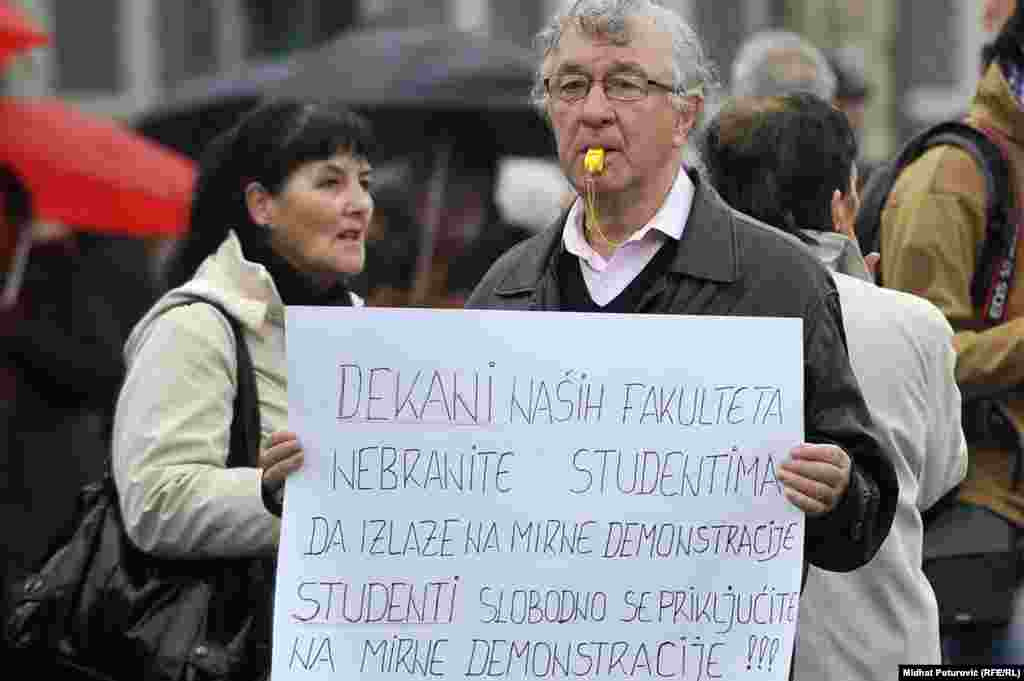 DEKANI NAŠIH FAKULTETA
NEBRANITE STUDENTIMA
DA IZLAZE NA MIRNE DEMONSTRACIJE
STUDENTI SLOBODNO SE PRIKLJUĆITE
NA MIRNE DEMONSTRACIJE !!!
EOS
Midhat Poturović (RFE/RL)